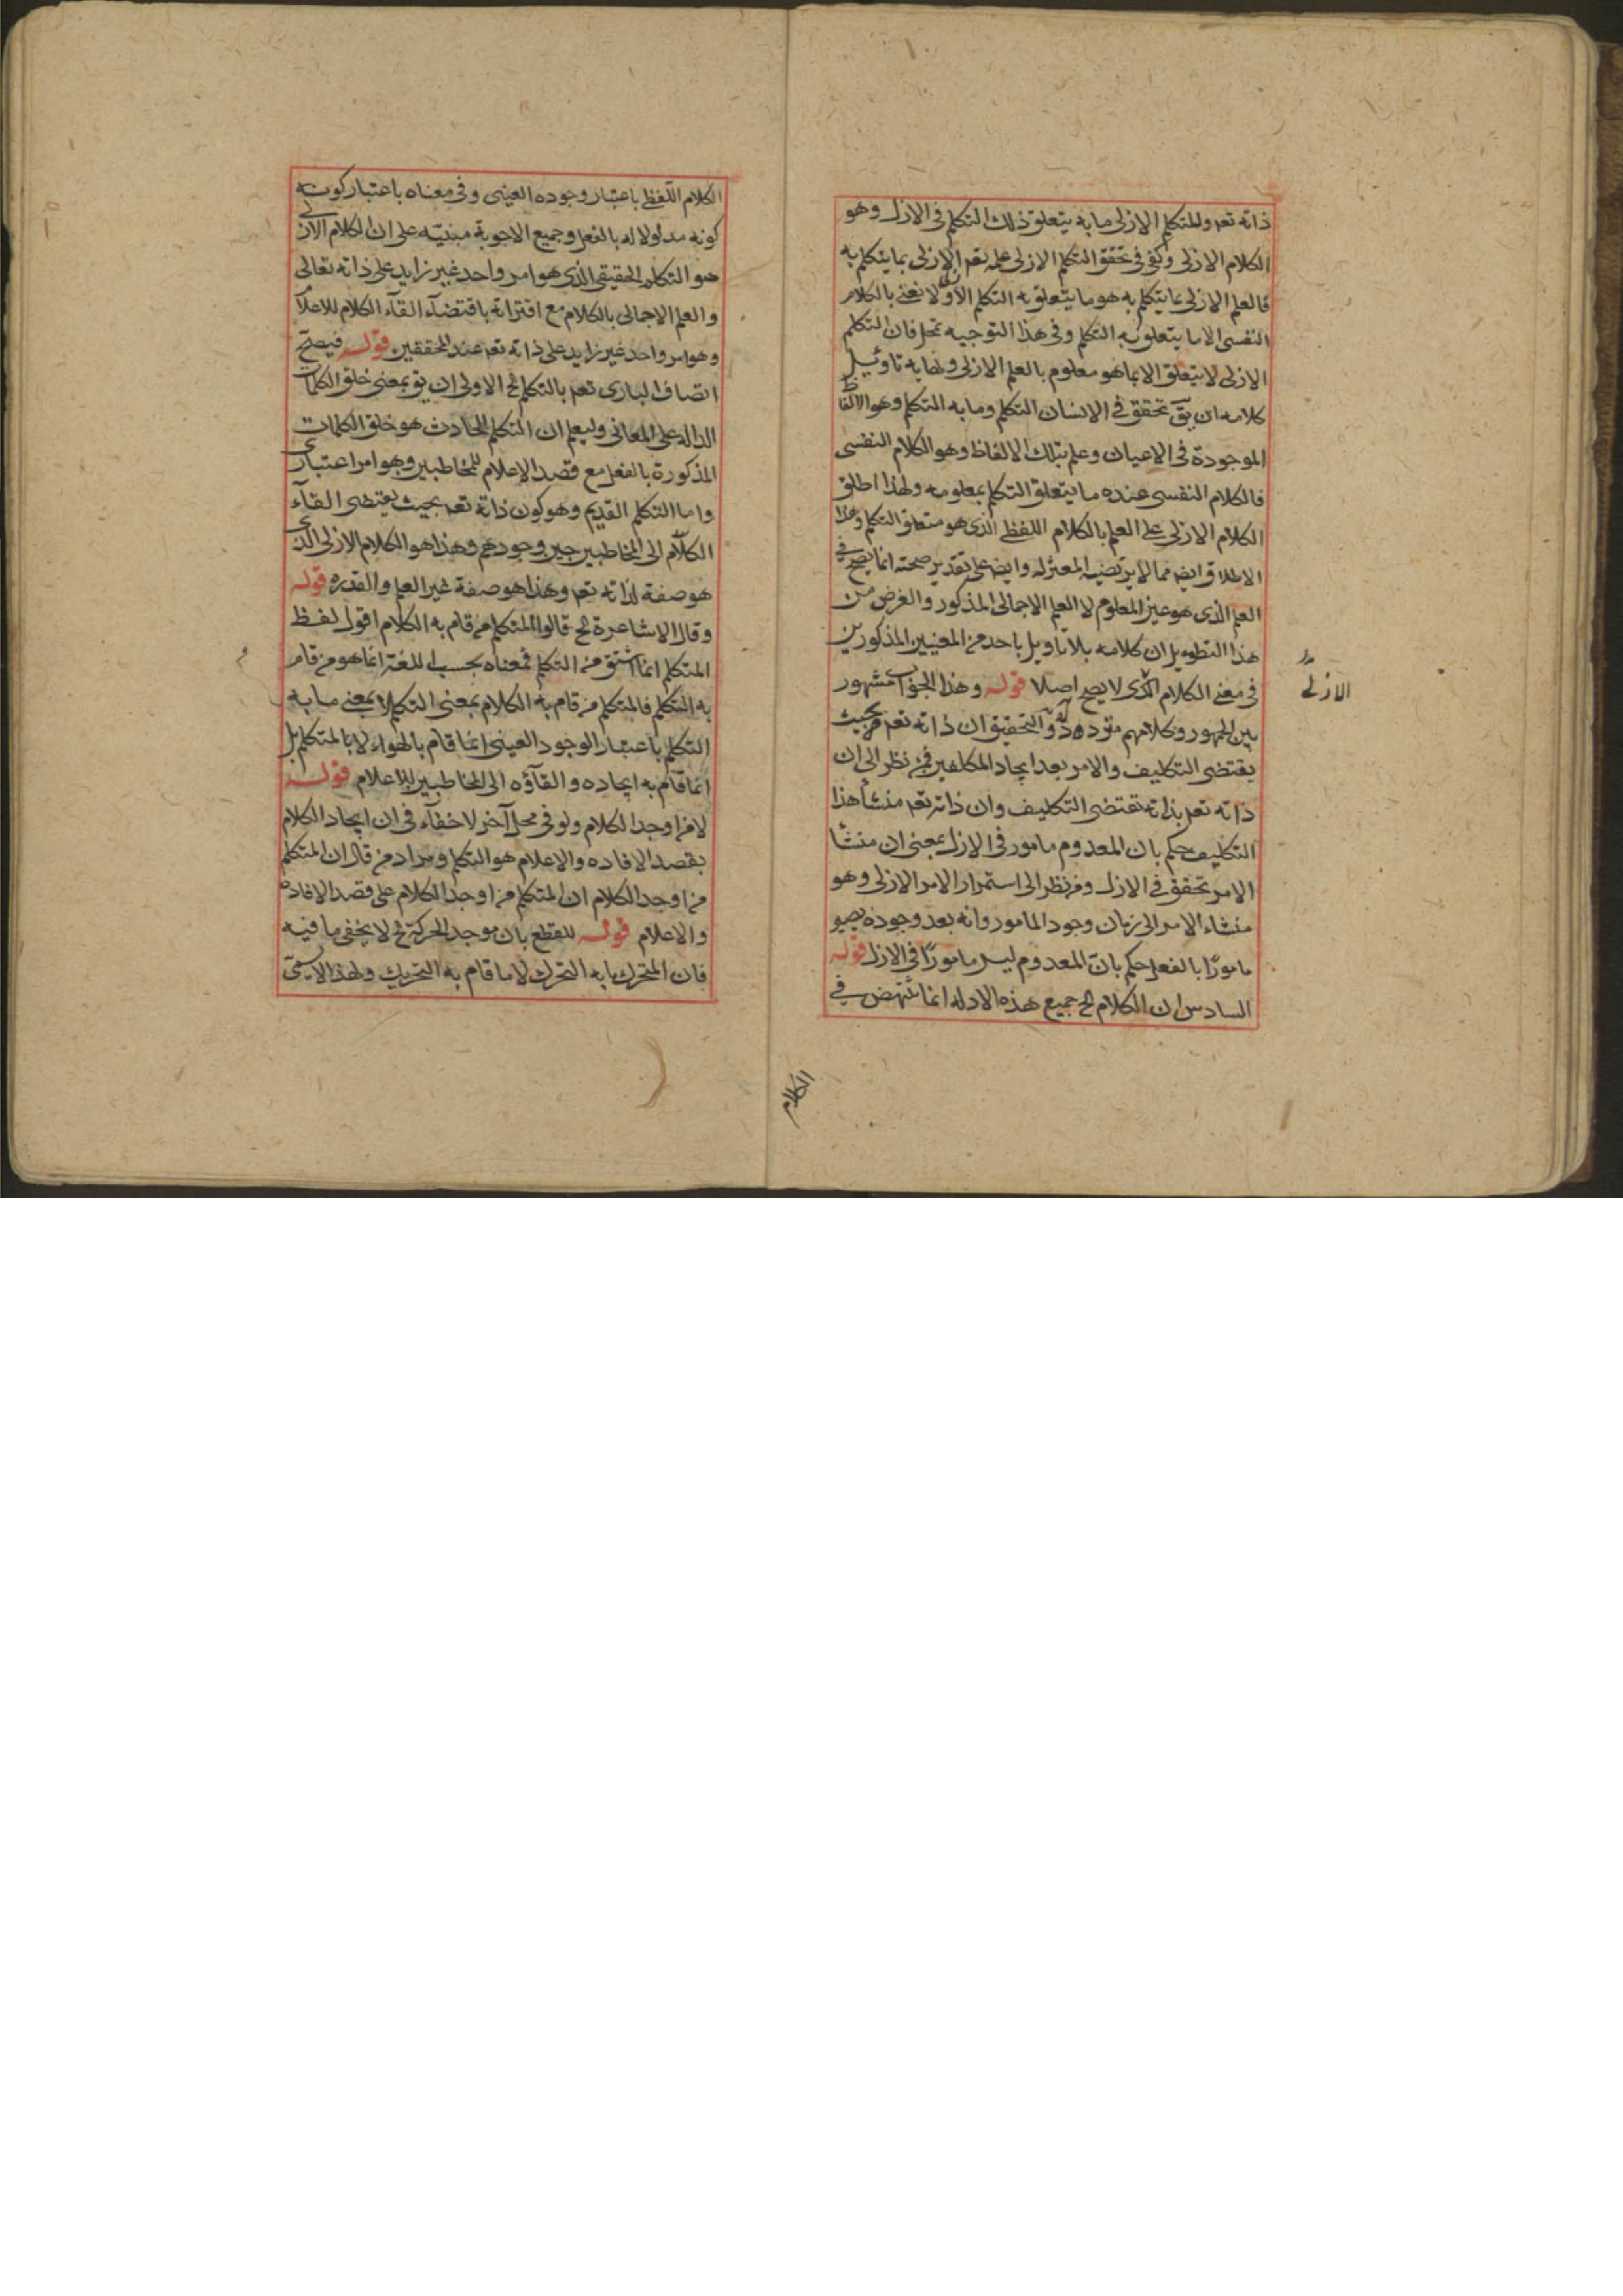 ذاته تعم وللمتكلم الازلى ما به يتعلق ذلك التكلم فى الازل وهو
الكلام الازلى وكفى فى تحقق التكلم الازلى علمه تعم الازلى بما يتكلم به
فالعلم الازلى بما يتكلم به هو ما يتعلق به التكلم الاولا نعنى بالكلام
النفسى الا ما يتعلق به التكلم وفى هذا التوجيه تمحل فان التكلم
الازلى لا يتعلق الا بما هو معلوم بالعلم الازلى ونهاية تاويل
كلامه ان يق تحقق فى الانسان التكلم وما به التكلم وهو الالفاظ
الموجودة فى الاعيان وعلم بتلك الالفاظ وهو الكلام النفسى
فالكلام النفسى عنده ما يتعلق التكلم بمعلومه ولهذا اطلق
الكلام الازلى على العلم بالكلام اللفظى الذى هو متعلق التكلم وهذا
الاطلاق ايضه مما لا يرتضيه المعتزله وايضه على تقدير صحته انما يصح فى
العلم الذى هو عين المعلوم لا العلم الاجمالى المذكور والغرض من
هذا التطويل ان كلامه بلا تاويل باحد من المعنيين المذكورين
الازلى
فى معنى الكلام الذى لا يصح اصلا قوله وهذا الجواب مشهور
بين الجمهور وكلامهم متردد والتحقيق ان ذاته تعم من حيث
يقتضى التكليف والامر بعد ايجاد المكلفين فمن نظر الى ان
ذاته تعم بذاته تقتضى التكليف وان ذاته تعم منشأ هذا
التكليف حكم بان المعدوم مامور فى الازل بمعنى ان منشأ
الامر تحقق فى الازل ومن نظر الى استمرار الامر الازلى وهو
منشاء الامر الى زمان وجود المامور وانه بعد وجوده يصير
مامورًا بالفعل حكم بان المعدوم ليس مامورًا فى الازل قوله
السادس ان الكلام الخ جميع هذه الادله انما تنهض فى
الكلام
الكلام اللفظى باعتبار وجوده العينى وفى معناه باعتبار كونه
كونه مدلولا له بالفعل وجميع الاجوبة مبنيته على ان الكلام الازلى
هو التكلم الحقيقى الذى هو امر واحد غير زايد على ذاته تعالى
والعلم الاجمالى بالكلام مع اقترانه باقتضاء القآء الكلام للاعلام
وهو امر واحد غير زايد على ذاته تعم عند المحققين قوله فيصح
اتصاف البارى تعم بالتكلم الخ الاولى ان يق بمعنى خلق الكلمات
الداله على المعانى وليعلم ان التكلم الحادث هو خلق الكلمات
المذكورة بالفعل مع قصد الاعلام للمخاطبين وهو امر اعتبارى
واما التكلم القديم وهو كون ذاته تعم بحيث يقتضى القآء
الكلام الى المخاطبين حين وجودهم وهذا هو الكلام الازلى الذى
هو صفة لذاته تعم وهذا هو صفة غير العلم والقدره قوله
وقال الاشاعرة الخ قالوا المتكلم من قام به الكلام اقول لفظ
المتكلم انما اشتق من التكلم فمعناه بحسب اللغة انما هو من قام
به التكلم فالمتكلم من قام به الكلام بمعنى التكلم لا بمعنى ما به
التكلم باعتبار الوجود العينى انما قام بالهواء لا بالمتكلم بل
انما قام به ايجاده والقآؤه الى المخاطبين للاعلام قوله
لا من اوجد الكلام ولو فى محل آخر لا خفآء فى ان ايجاد الكلام
بقصد الافاده والاعلام هو التكلم ومراد من قال ان المتكلم
من اوجد الكلام ان المتكلم من اوجد الكلام على قصد الافاده
والاعلام قوله للقطع بان موجد الحركة الخ لا يخفى ما فيه
فان المتحرك ما به التحرك لا ما قام به التحريك ولهذا لا يسمى